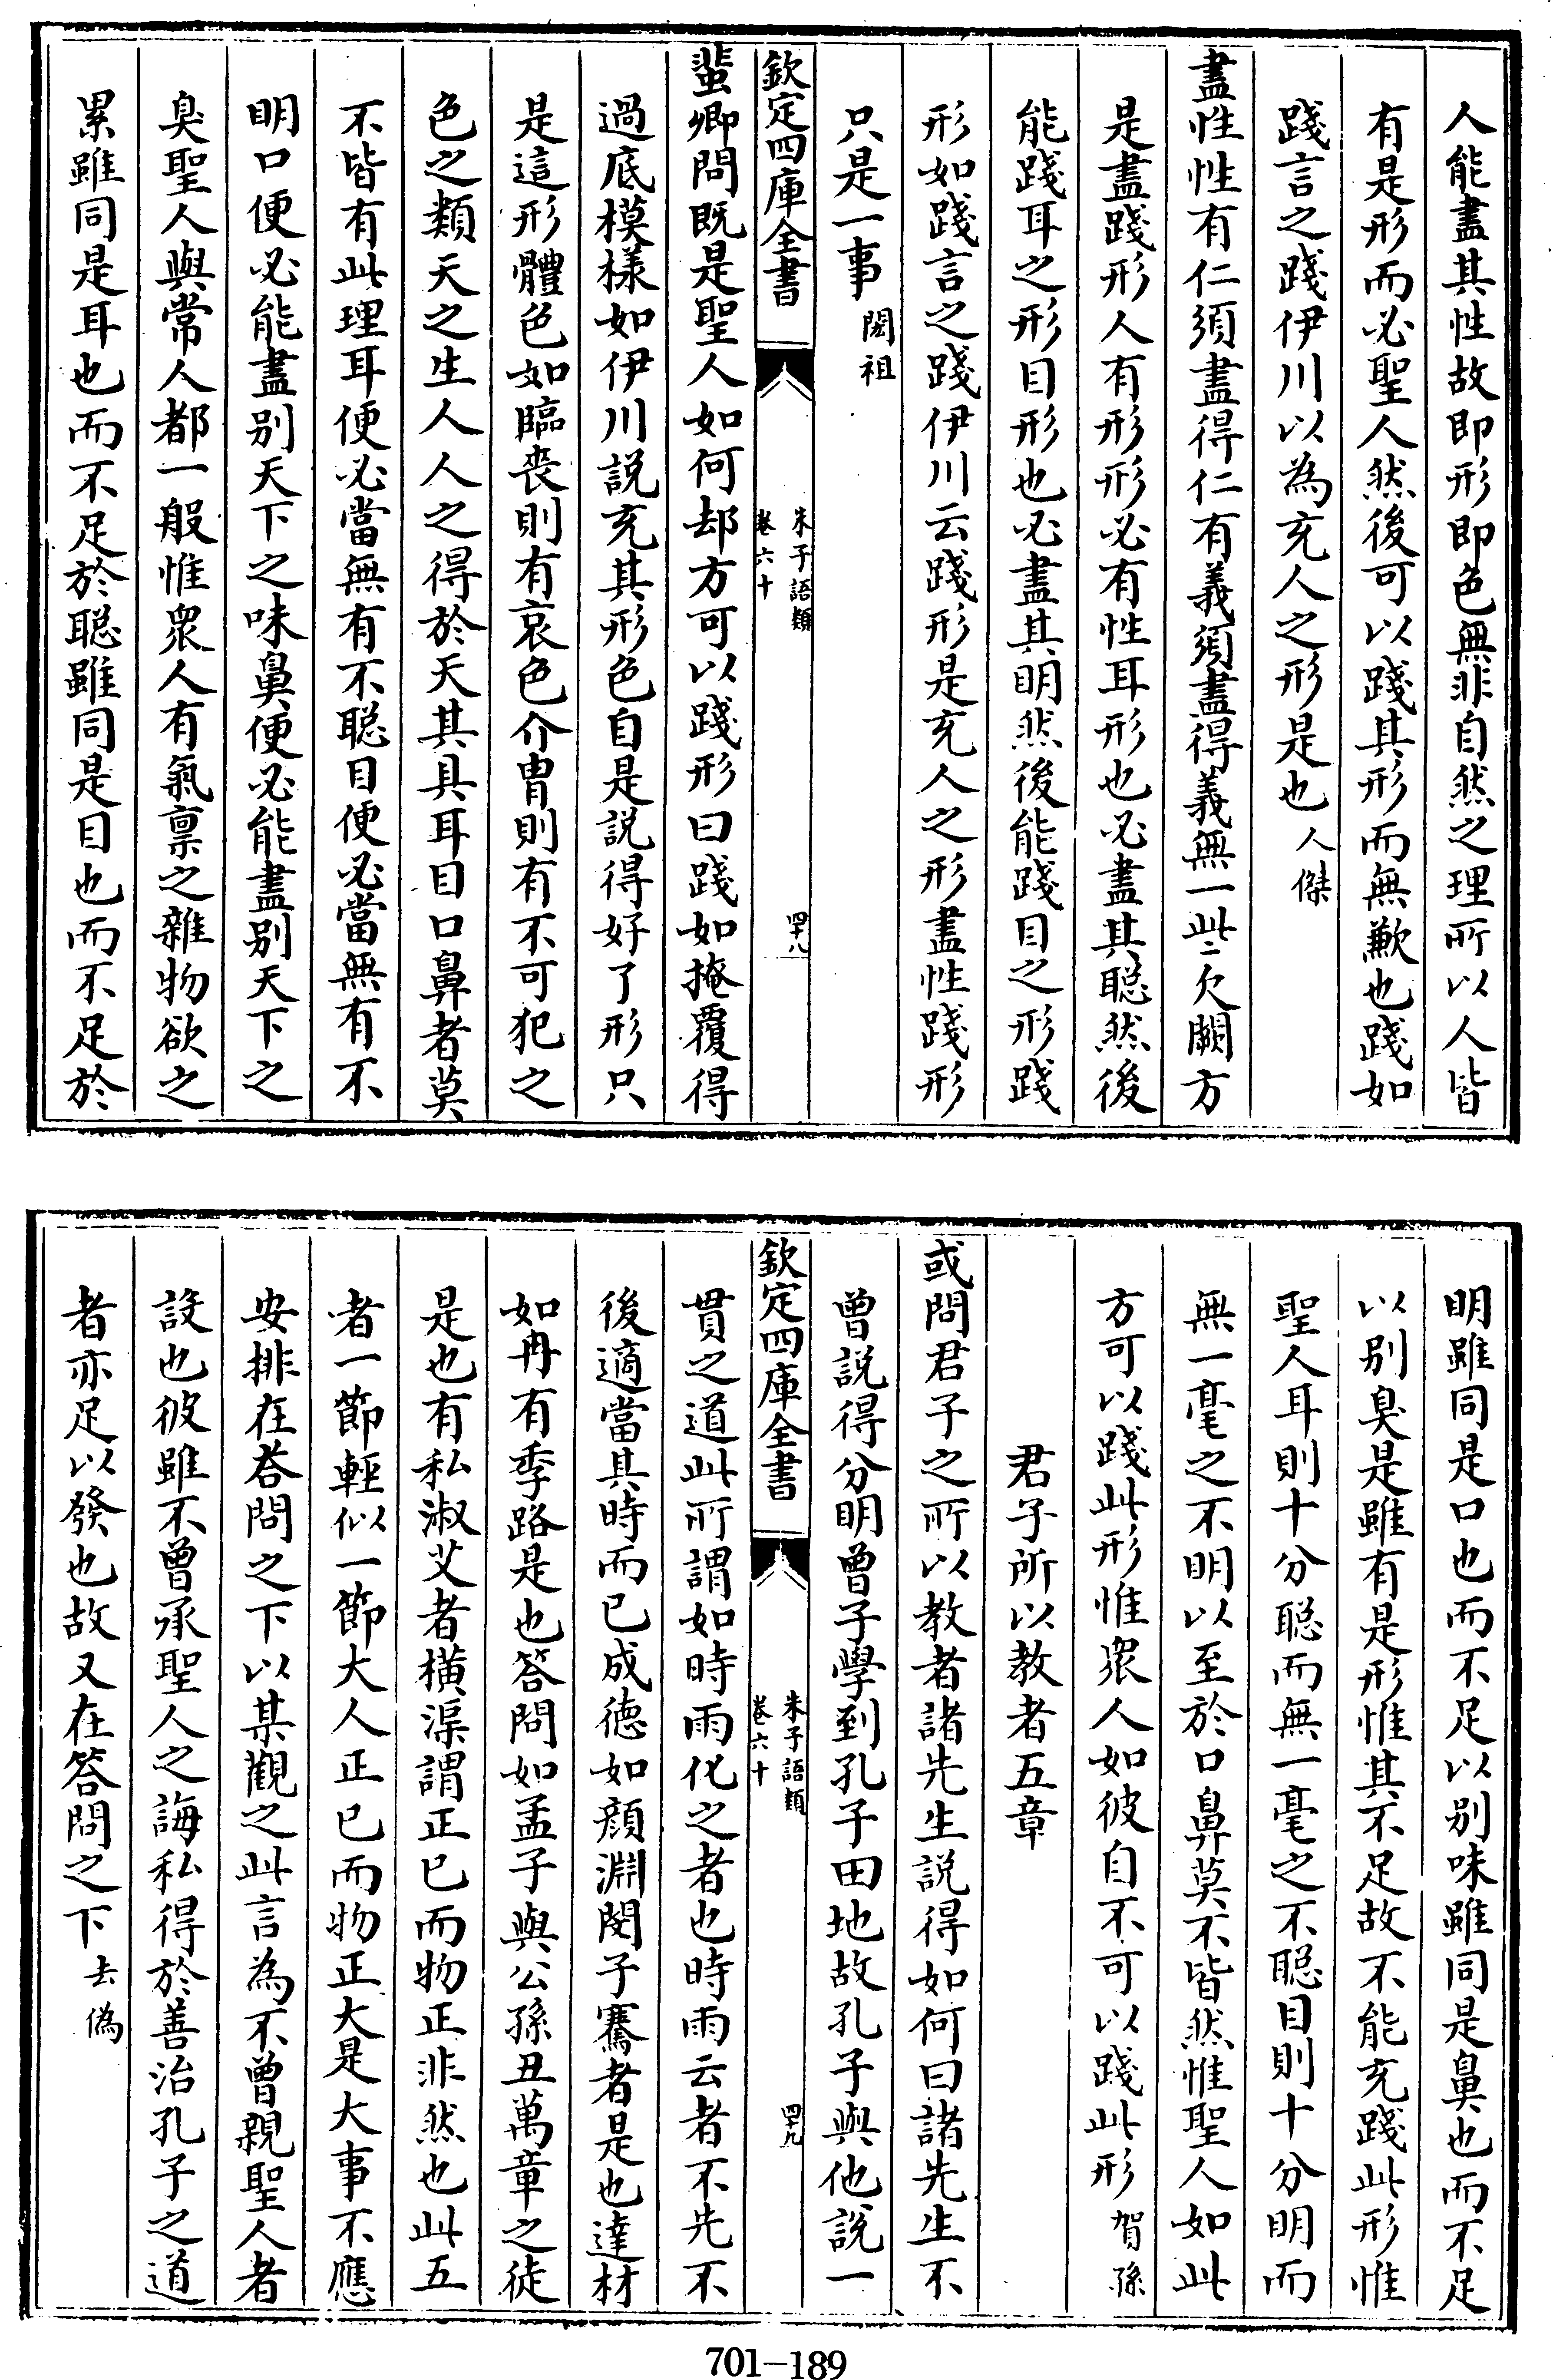 人能盡其性故即形即色無非自然之理所以人皆
有是形而必聖人然後可以踐其形而無歉也踐如
踐言之踐伊川以為充人之形是也人傑
盡性性有仁須盡得仁有義須盡得義無一些二欠闕方
是盡踐形人有形形必有性耳形也必盡其聡然後
能踐耳之形目形也必盡其明然後能踐目之形踐
形如踐言之踐伊川云踐形是充人之形盡性踐形
只是一事閎祖
欽定四庫全書
朱子語類
卷六十
四十八
蜚卿問既是聖人如何却方可以踐形曰踐如掩覆得
過底模樣如伊川説充其形色自是説得好了形只
是這形體色如臨喪則有哀色介胄則有不可犯之
色之類天之生人人之得於天其具耳目口鼻者莫
不皆有此理耳便必當無有不聡目便必當無有不
明口便必能盡别天下之味鼻便必能盡别天下之
臭聖人與常人都一般惟衆人有氣禀之雜物欲之
累雖同是耳也而不足於聡雖同是目也而不足於
明雖同是口也而不足以别味雖同是鼻也而不足
以别臭是雖有是形惟其不足故不能充踐此形惟
聖人耳則十分聡而無一毫之不聡目則十分明而
無一毫之不明以至於口鼻莫不皆然惟聖人如此
方可以踐此形惟衆人如彼自不可以踐此形賀孫
君子所以教者五章
或問君子之所以教者諸先生説得如何曰諸先生不
曾説得分明曾子學到孔子田地故孔子與他説一
欽定四庫全書
朱子語類
卷六十
四十九
貫之道此所謂如時雨化之者也時雨云者不先不
後適當其時而已成徳如顔淵閔子騫者是也達材
如冉有季路是也答問如孟子與公孫丑萬章之徒
是也有私淑艾者横渠謂正已而物正非然也此五
者一節輕似一節大人正已而物正大是大事不應
安排在答問之下以某觀之此言為不曾親聖人者
設也彼雖不曾承聖人之誨私得於善治孔子之道
者亦足以發也故又在答問之下去偽
701—189